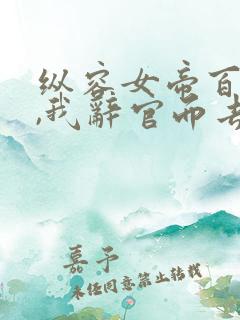 纵容女帝百
,我辞官而去
嘉予
未经同意禁止转载